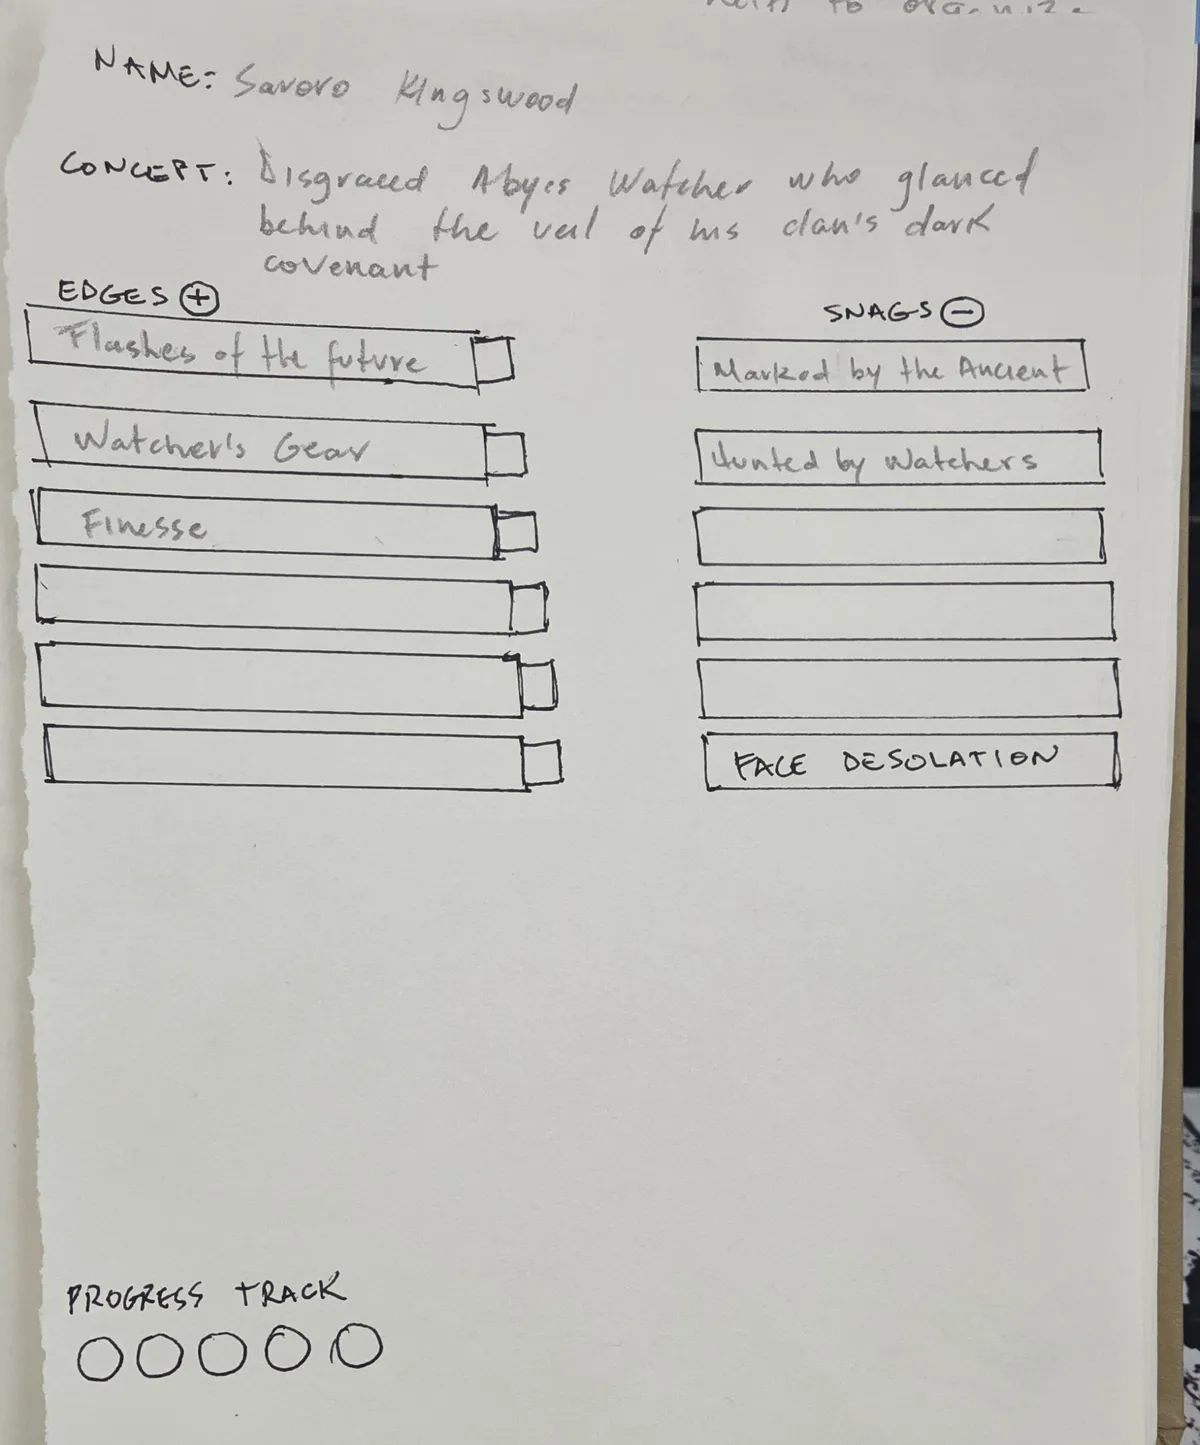 NAME: Savoro Kingswood
CONCEPT: Disgraced Abyss Watcher who glanced
behind the veil of his clan's dark
covenant
EDGES +
Flashes of the future
Watcher's Gear
Finesse
SNAGS -
Marked by the Ancient
Hunted by Watchers
FACE DESOLATION
PROGRESS TRACK